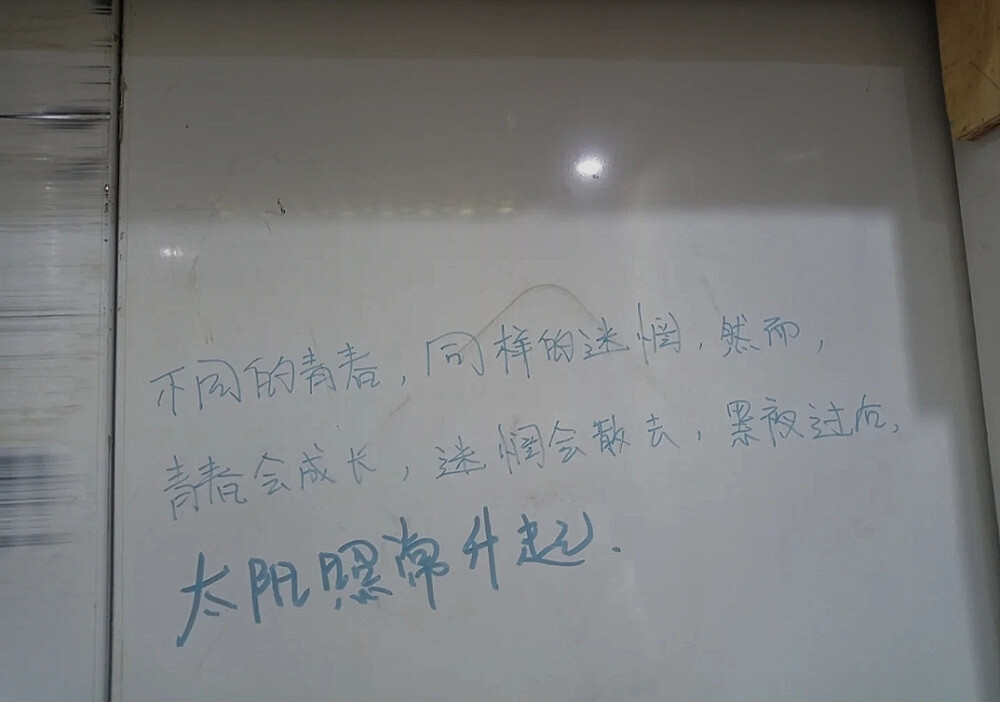 不同的青春，同样的迷惘，然而，
青春会成长，迷惘会散去，黑夜过后，
太阳照常升起.